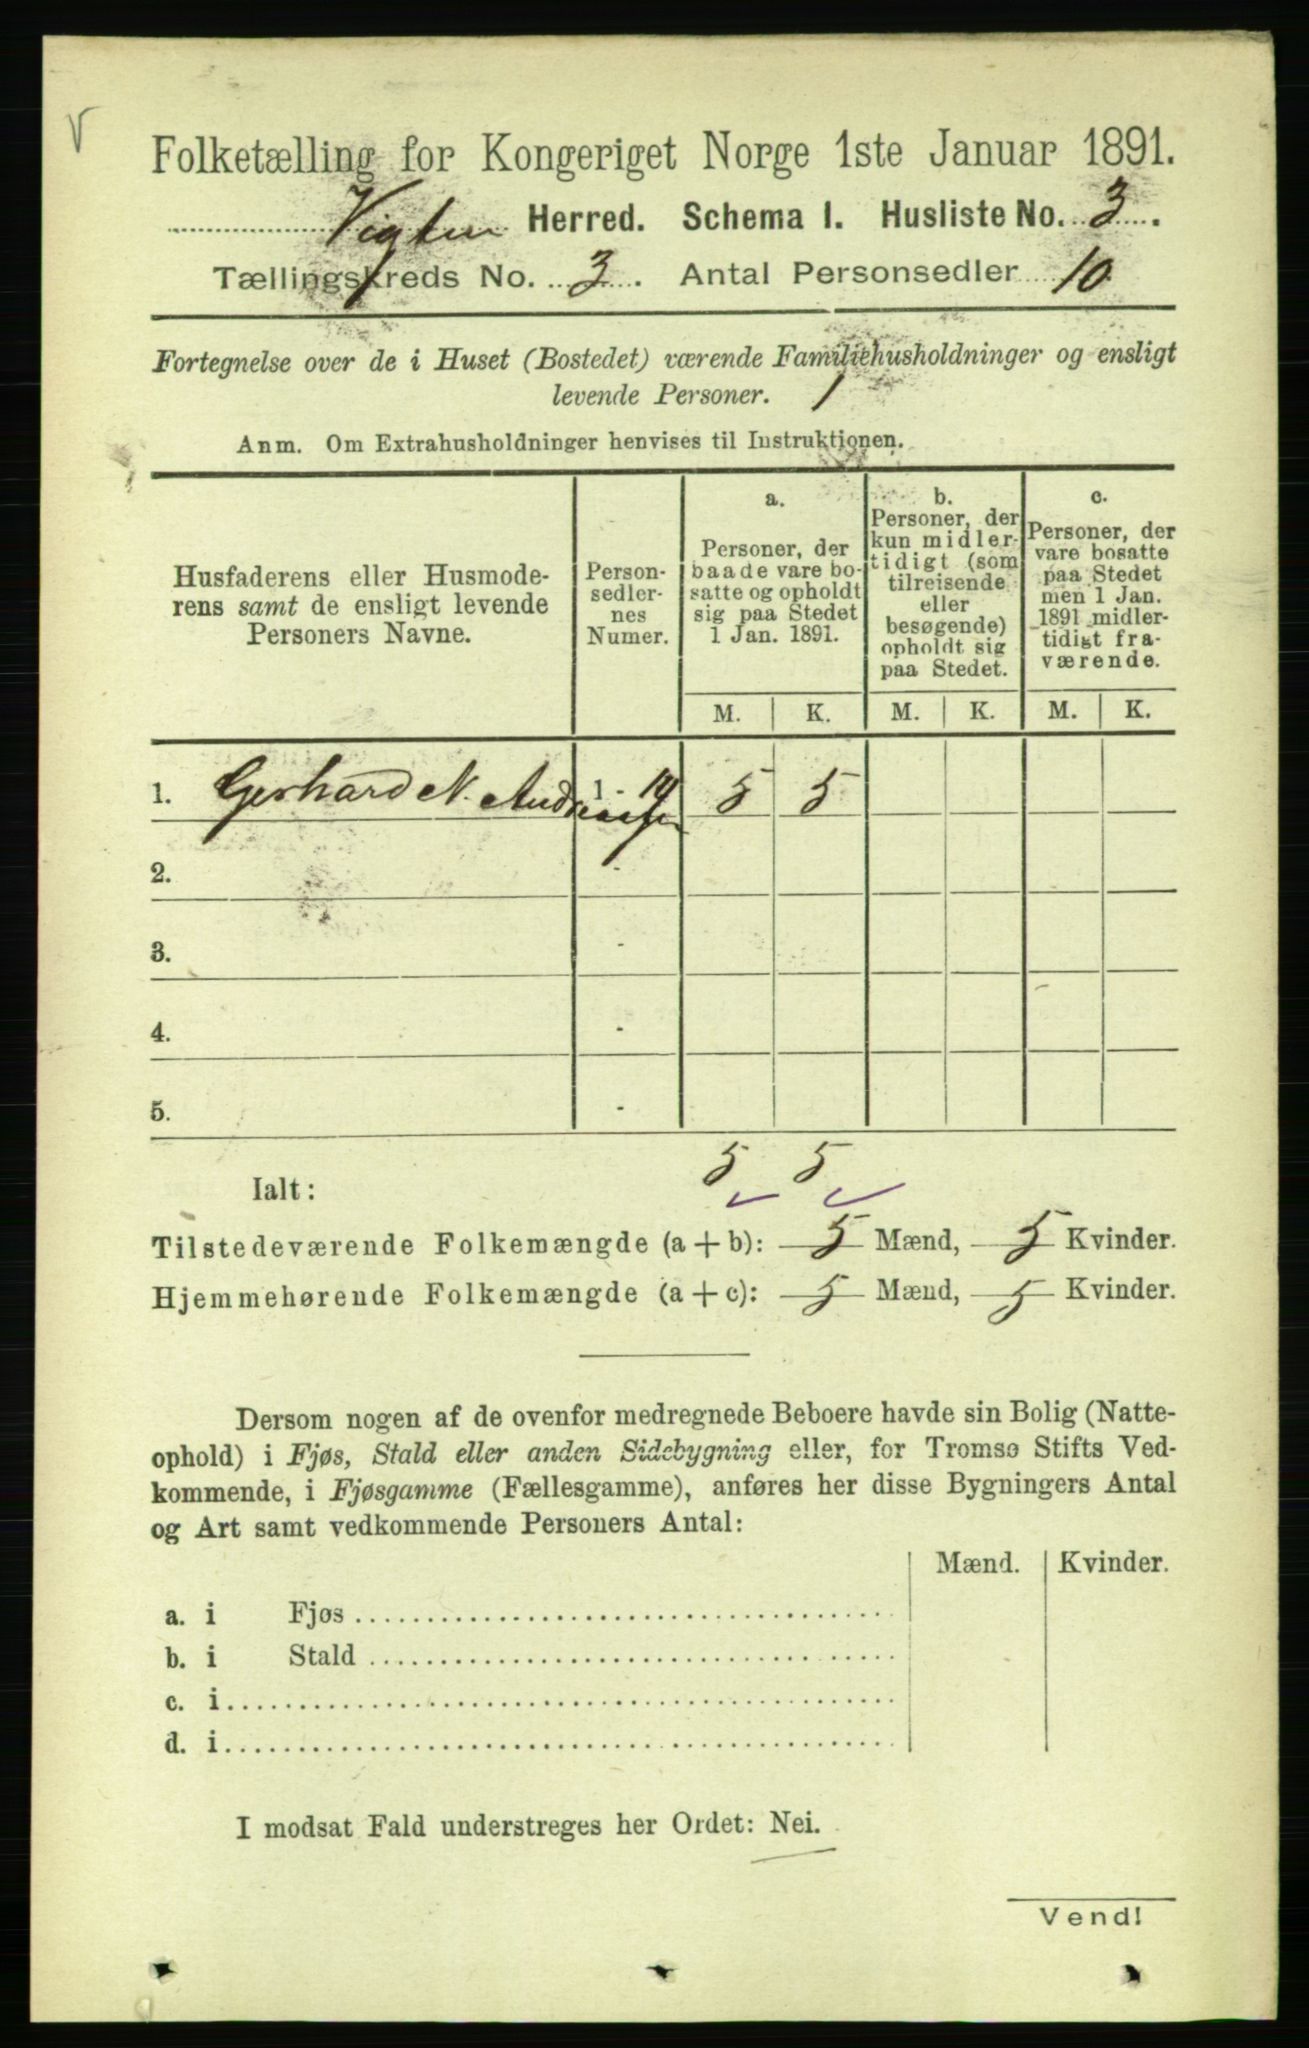 V
Folketælling for Kongeriget Norge 1ste Januar 1891.
Vigten Herred. Schema I. Husliste No. 3.
Tællingskreds No. 3. Antal Personsedler 10
Fortegnelse over de i Huset (Bostedet) værende Familiehusholdninger og ensligt
levende Personer. 1
Anm. Om Extrahusholdninger henvises til Instruktionen.
Husfaderens eller Husmode-
rens samt de ensligt levende
Personers Navne.
Person-
sedler-
nes
Numer.
a.
Personer, der
baade vare bo-
satte og opholdt
sig paa Stedet
1 Jan. 1891.
b.
Personer, der
kun midler-
tidigt (som
tilreisende
eller
besøgende)
opholdt sig
paa Stedet.
c.
Personer, der
vare bosatte
paa Stedet
men 1 Jan.
1891 midler-
tidigt fra-
værende.
M. K. M. K. M. K.
1. Gerhard N. Andreassen 1 - 10 5 5
2. -
3. -
4. -
5. -
Ialt: 5 5
Tilstedeværende Folkemængde (a + b): 5 Mænd, 5 Kvinder.
Hjemmehørende Folkemængde (a + c): 5 Mænd, 5 Kvinder.
Dersom nogen af de ovenfor medregnede Beboere havde sin Bolig (Natte-
ophold) i Fjøs, Stald eller anden Sidebygning eller, for Tromsø Stifts Ved-
kommende, i Fjøsgamme (Fællesgamme), anføres her disse Bygningers Antal
og Art samt vedkommende Personers Antal:
Mænd. Kvinder.
a. i Fjøs
b. i Stald
c. i
d. i
I modsat Fald understreges her Ordet: Nei.
Vend!